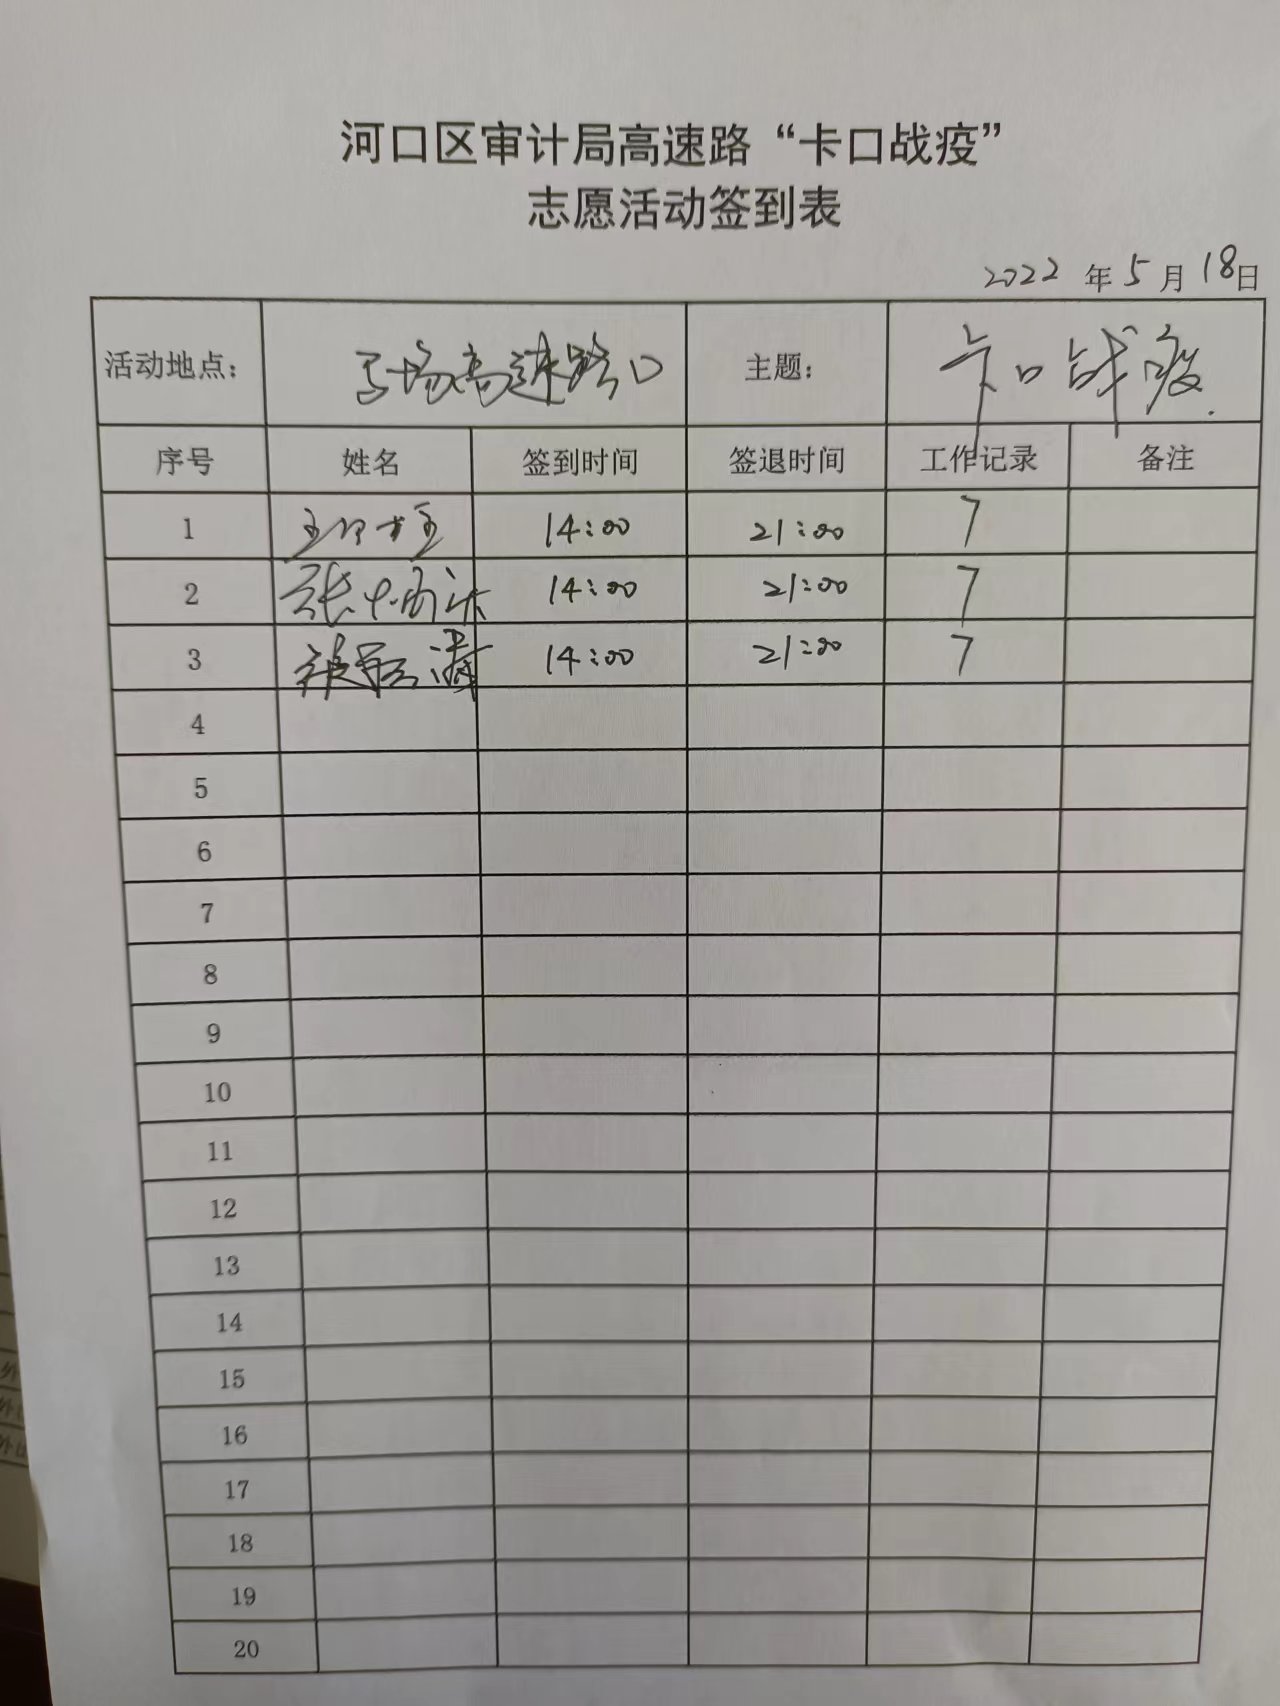 河口区审计局高速路“卡口战疫”
志愿活动签到表
2022 年 5 月 18日
活动地点： 马场高速路口 主题： 卡口战疫
序号 姓名 签到时间 签退时间 工作记录 备注
1 14:00 21:00 7
2 14:00 21:00 7
3 14:00 21:00 7
4
5
6
7
8
9
10
11
12
13
14
15
16
17
18
19
20